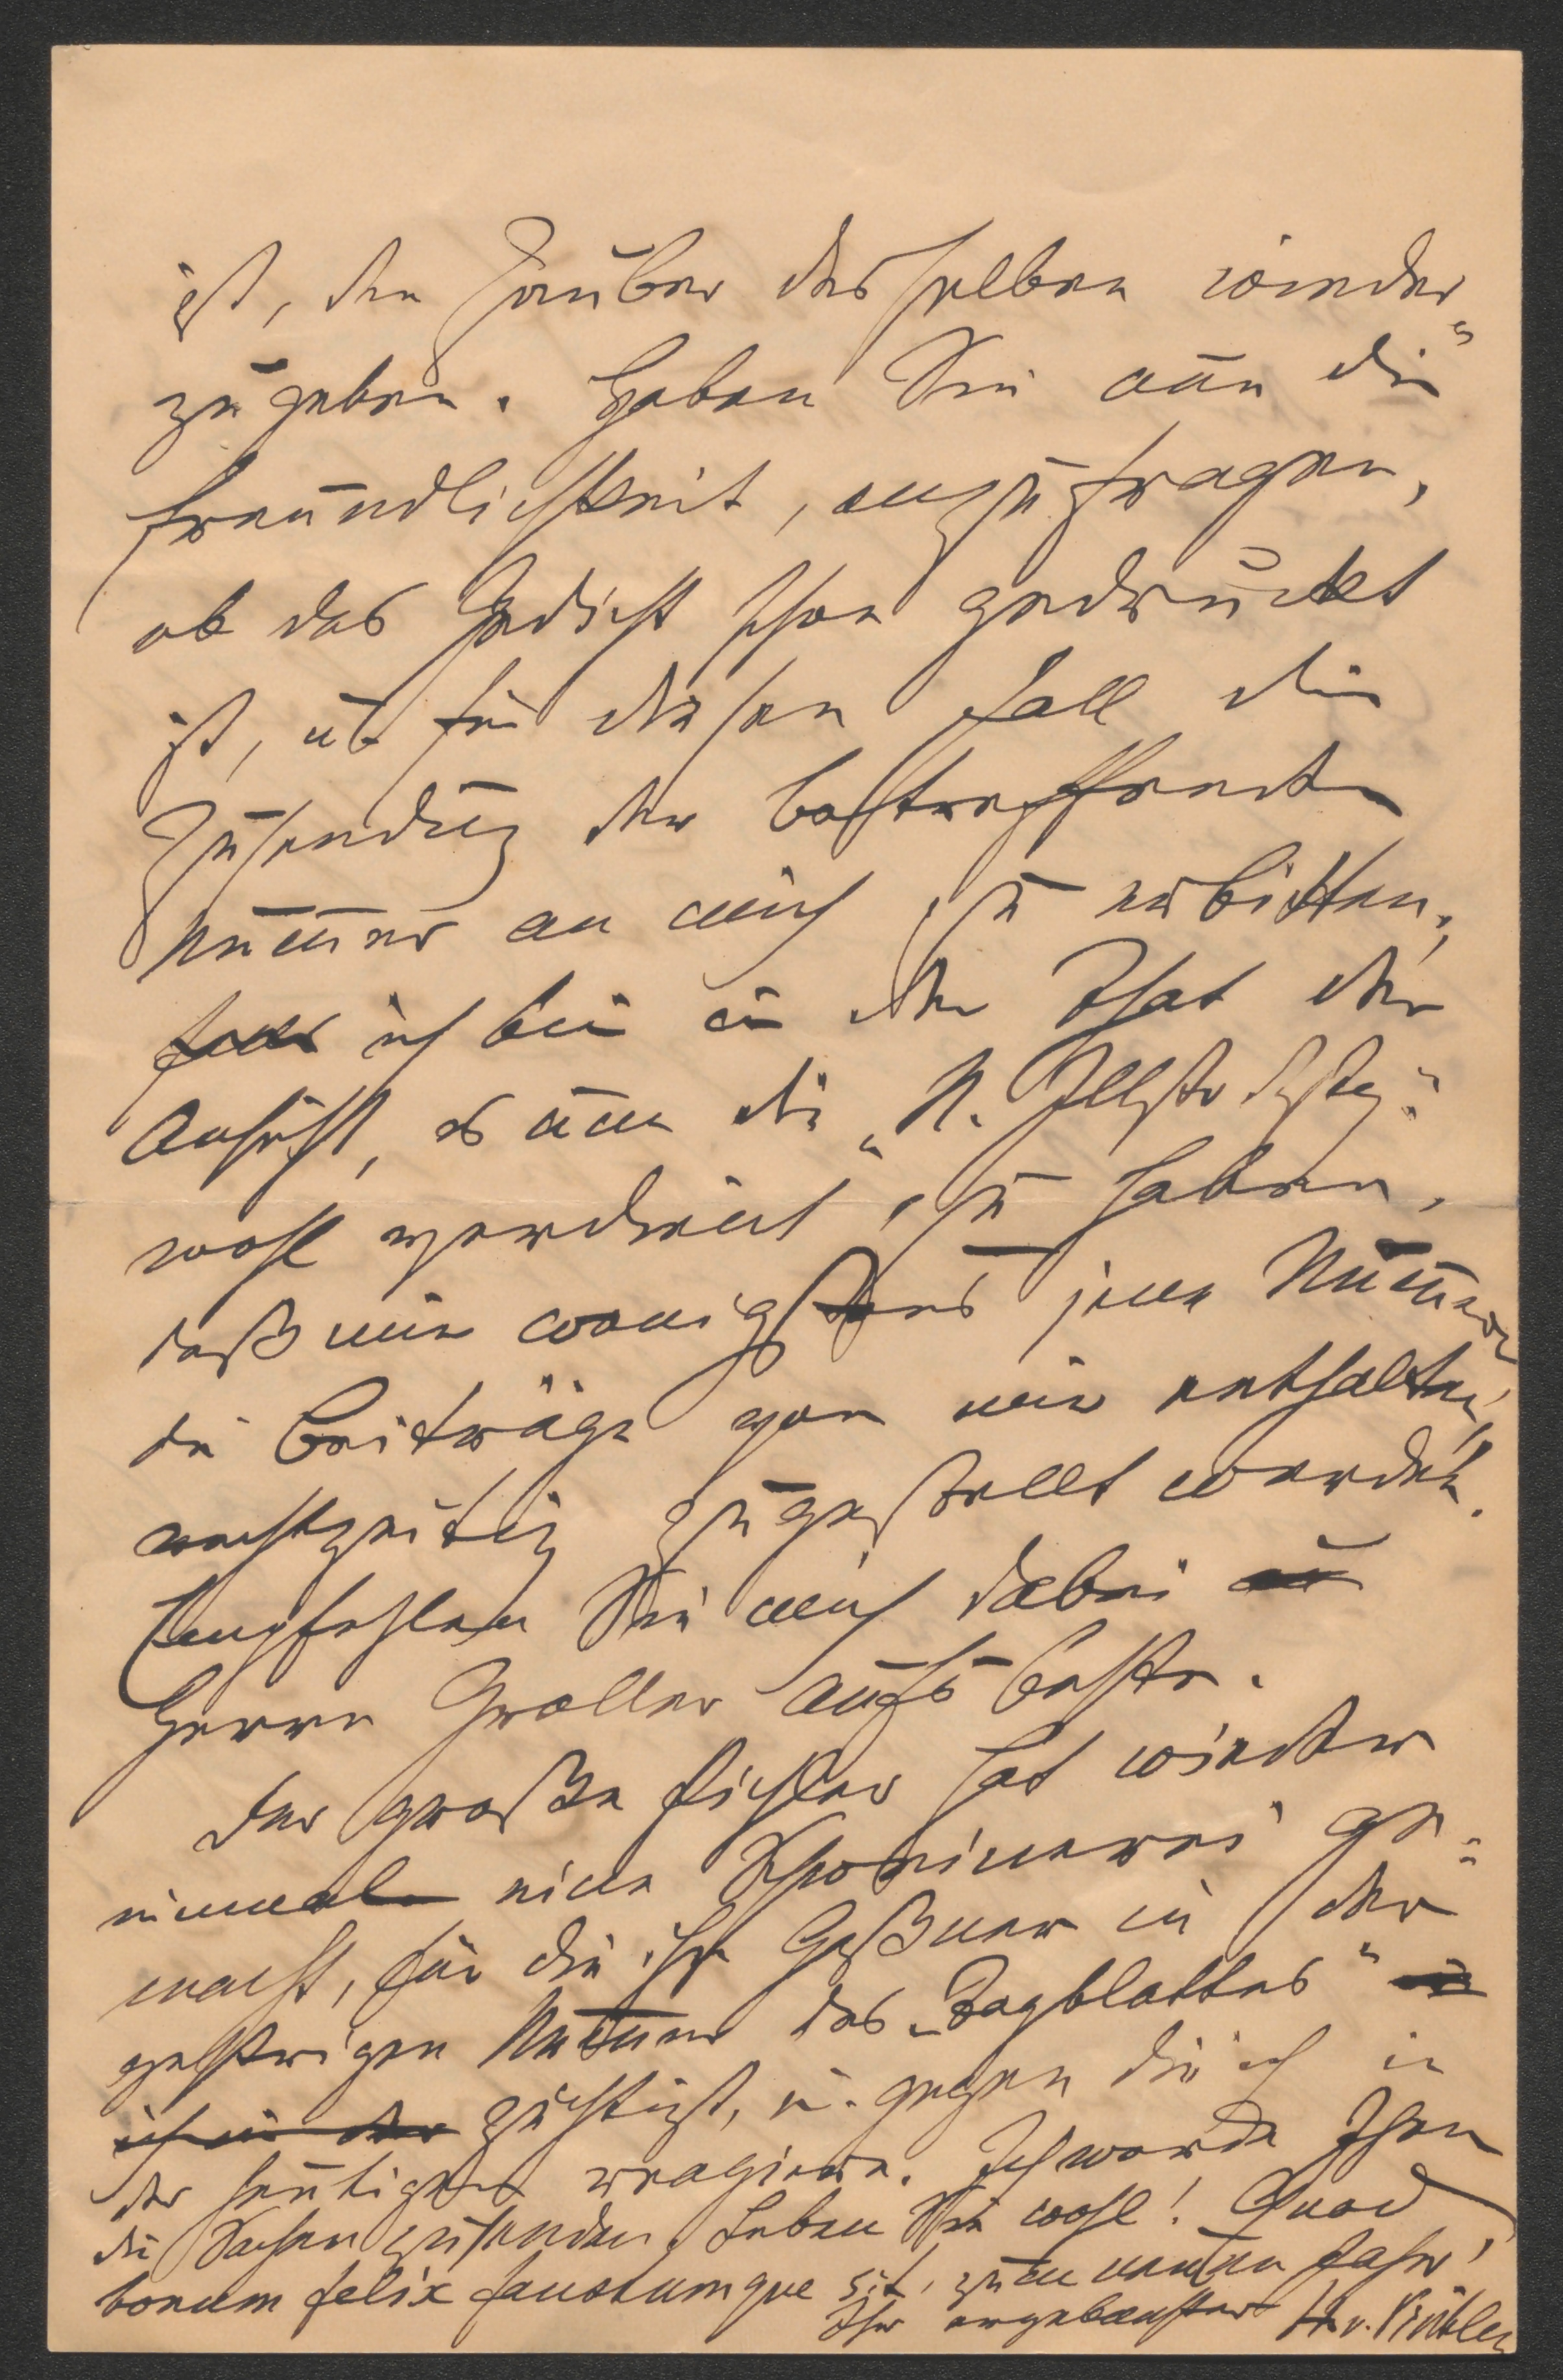 ist, den Zauber desselben wieder
zugeben. Haben Sie nun die
Freundlichkeit, anzufragen,
ob das Gedicht schon gedruckt
ist, u. für diesen Fall die
Zusendung der betreffenden
Nummer an mich zu erbitten;
ich bin in der That der
Ansicht, es um die „N. Illstr. Ztg."
wohl verdient zu haben,
daß mir wenigstens jene Nummern
die Beiträge von mir enthalten,
rechtzeitig zugestellt werden.
Empfehlen Sie mich dabei
Herrn Groller aufs beste.
Der große Pichler hat wieder
einmal eine Schweinerei ge-
macht, für die ihn Geßner in der
gestrigen Nummer des „Tagblattes"
züchtigt, u. gegen die ich in
der heutigen reagiere. Ich werde Ihnen
die Sachen zusenden. Leben Sie wohl! Quod
bonum felix faustumque sit, zum neuen Jahr!
Ihr ergebenster H. v. Vintler